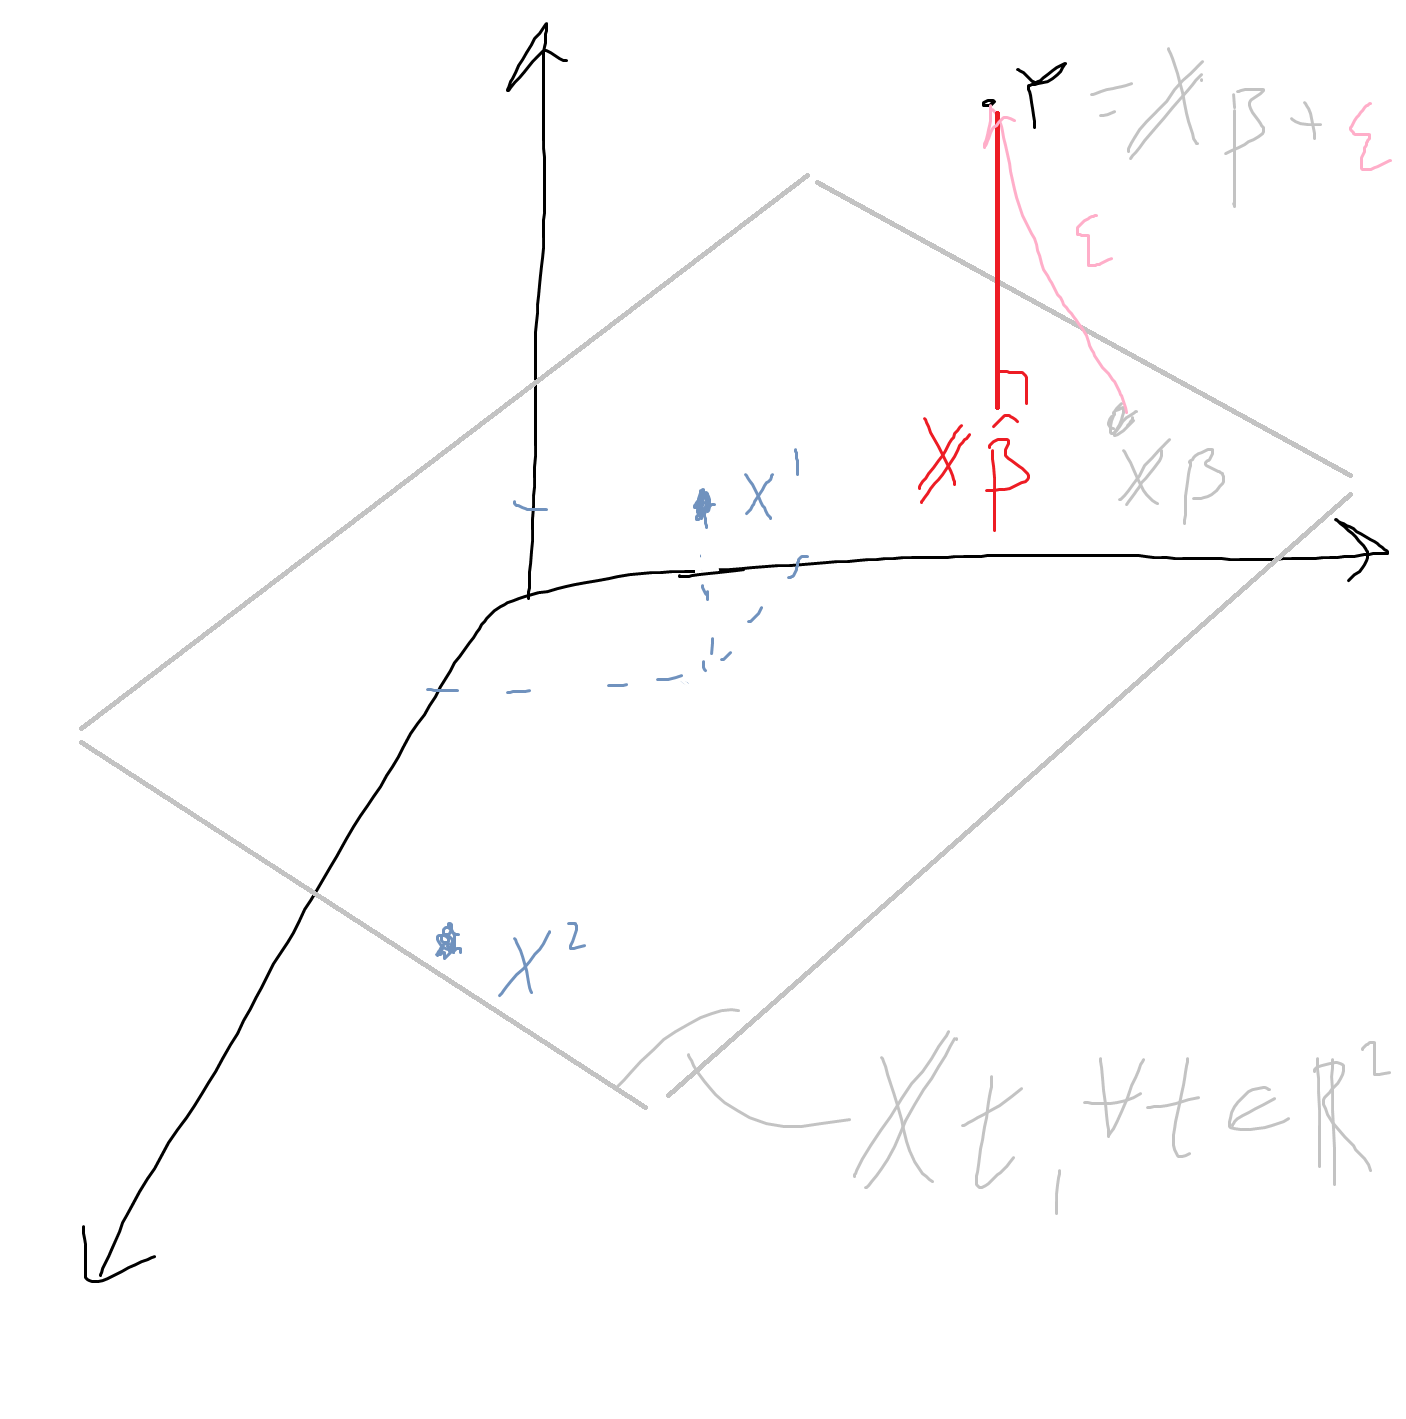 Y = Xβ + ε
ε
Xβ̂
Xβ
X¹
X²
Xt, ∀t∈ℝ²